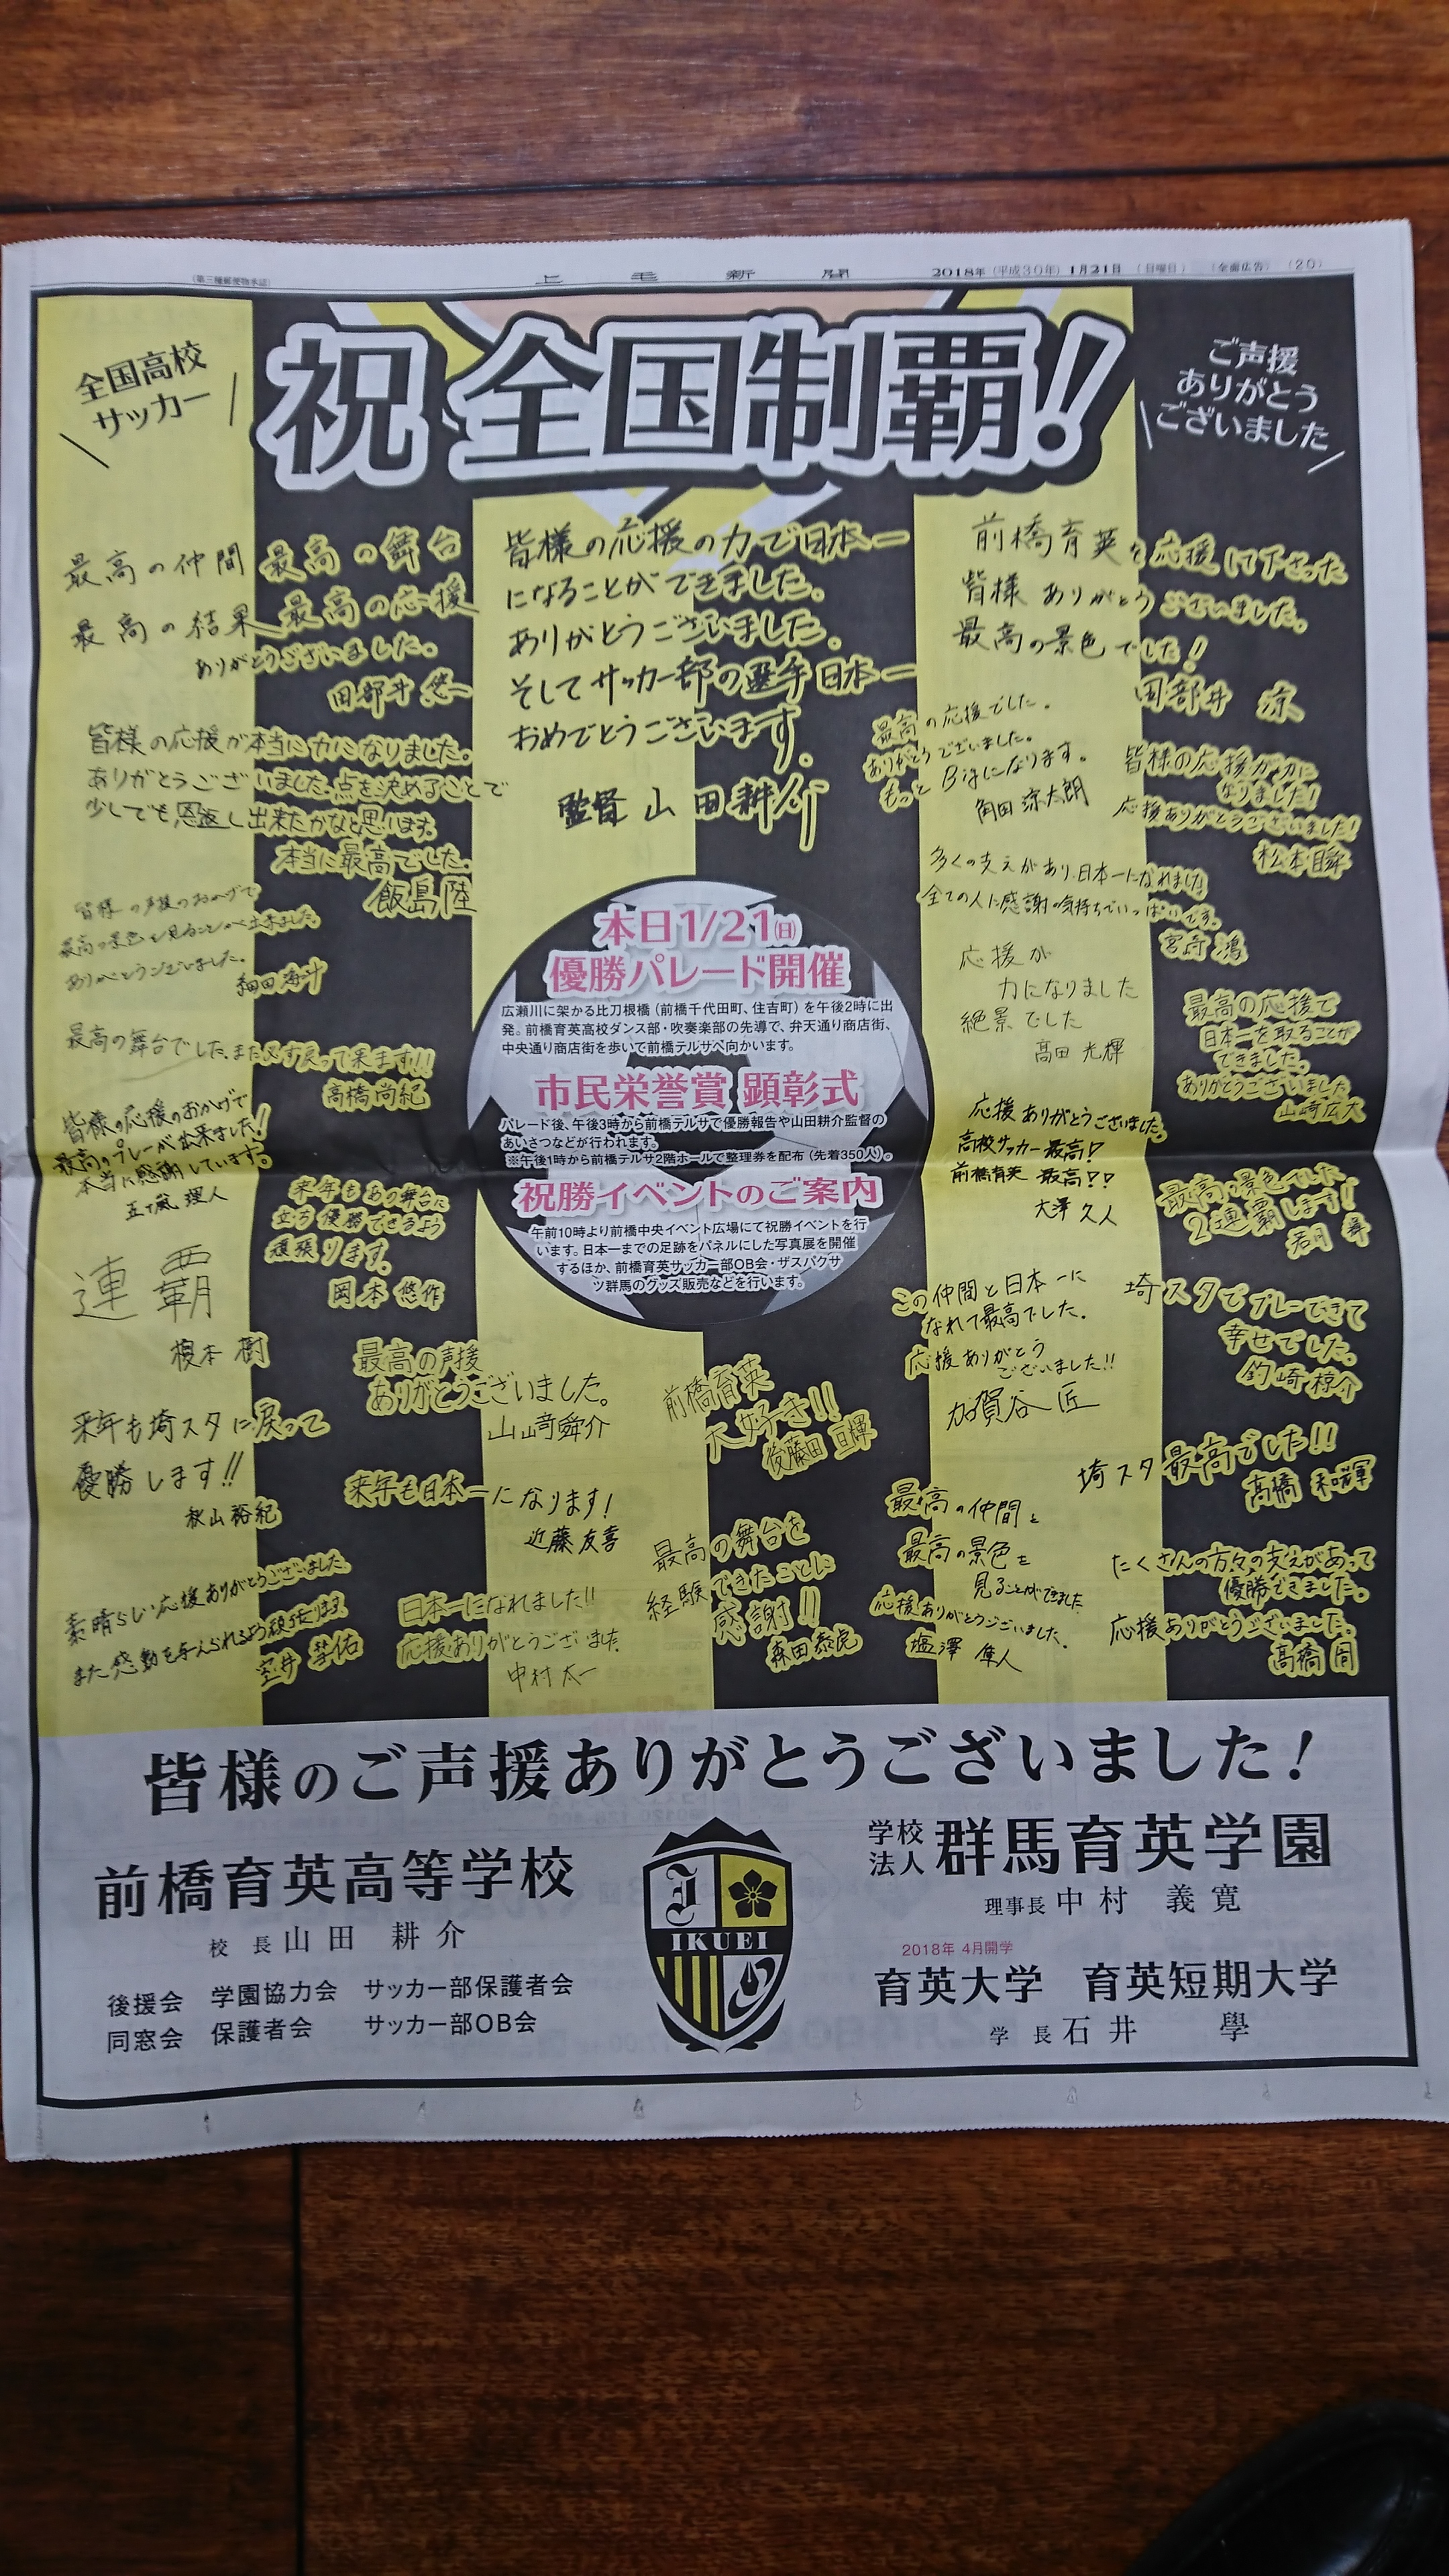 (第三種郵便物承認)
上毛新聞
2018年(平成30年)1月21日 (日曜日) (全面広告) (20)
全国高校
サッカー
祝 全国制覇!
ご声援
ありがとう
ございました
最高の仲間 最高の舞台
最高の結果 最高の応援
ありがとうございました。
田部井 悠
皆様の応援の力で日本一
になることができました。
ありがとうございました。
そしてサッカー部の選手日本一
おめでとうございます。
監督 山田耕介
前橋育英を応援して下さった
皆様 ありがとうございました。
最高の景色でした!
田部井 涼
皆様の応援が本当に力になりました。
ありがとうございました。点を決めることで
少しでも恩返し出来たかなと思います。
本当に最高でした。
飯島 陸
最高の応援でした。
ありがとうございました。
もっとBigになります。
角田涼太朗
皆様の応援が力に
なりました!
応援ありがとうございました!
松本瞬
皆様の声援のおかげで
最高の景色を見ることが出来ました。
ありがとうございました。
多くの支えがあり、日本一になれました
全ての人に感謝の気持ちでいっぱいです。
宮崎 鴻
最高の舞台でした。また必ず戻って来ます!!
高橋尚紀
応援が
力になりました
絶景でした
髙田 光輝
最高の応援で
日本一を取ることが
できました。
ありがとうございました
山崎広大
皆様の応援のおかげで
最高のプレーが出来ました!
本当に感謝しています。
五十嵐 理人
本日1/21(日)
優勝パレード開催
広瀬川に架かる比刀根橋(前橋千代田町、住吉町)を午後2時に出
発。前橋育英高校ダンス部・吹奏楽部の先導で、弁天通り商店街、
中央通り商店街を歩いて前橋テルサへ向かいます。
市民栄誉賞 顕彰式
パレード後、午後3時から前橋テルサで優勝報告や山田耕介監督の
あいさつなどが行われます。
※午後1時から前橋テルサ2階ホールで整理券を配布(先着350人)。
祝勝イベントのご案内
午前10時より前橋中央イベント広場にて祝勝イベントを行
います。日本一までの足跡をパネルにした写真展を開催
するほか、前橋育英サッカー部OB会・ザスパクサ
ツ群馬のグッズ販売などを行います。
応援ありがとうございました。
高校サッカー最高!
前橋育英 最高!!
大澤 久人
最高の景色でした
2連覇します!!
若月 輝
来年もあの舞台に
立ち優勝できるよう
頑張ります。
岡本 悠作
連覇
榎本 樹
この仲間と日本一に
なれて最高でした。
応援ありがとう
ございました!!
加賀谷 匠
埼スタでプレーできて
幸せでした。
釣崎椋介
最高の声援
ありがとうございました。
山崎舜介
前橋育英
大好き!!
後藤田 亘輝
来年も埼スタに戻って
優勝します!!
秋山裕紀
来年も日本一になります!
近藤友喜
埼スタ最高でした!!
最高の舞台を
経験できたことに
感謝!!
森田泰虎
最高の仲間と
最高の景色を
見ることができました
応援ありがとうございました。
塩澤 隼人
たくさんの方々の支えがあって
優勝できました。
応援ありがとうございました。
髙橋 周
素晴らしい応援ありがとうございました。
また感動を与えられるよう頑張ります
室井 彗佑
日本一になれました!!
応援ありがとうございました
中村太一
皆様のご声援ありがとうございました!
前橋育英高等学校
校長 山田 耕介
後援会 学園協力会 サッカー部保護者会
同窓会 保護者会 サッカー部OB会
IKUEI
学校法人 群馬育英学園
理事長 中村 義寛
2018年 4月開学
育英大学 育英短期大学
学長 石井 學